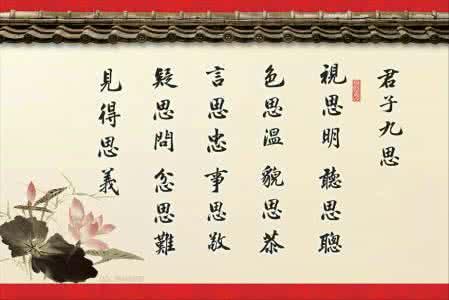 君子九思
視思明 聽思聰
色思溫 貌思恭
言思忠 事思敬
疑思問 忿思難
見得思義